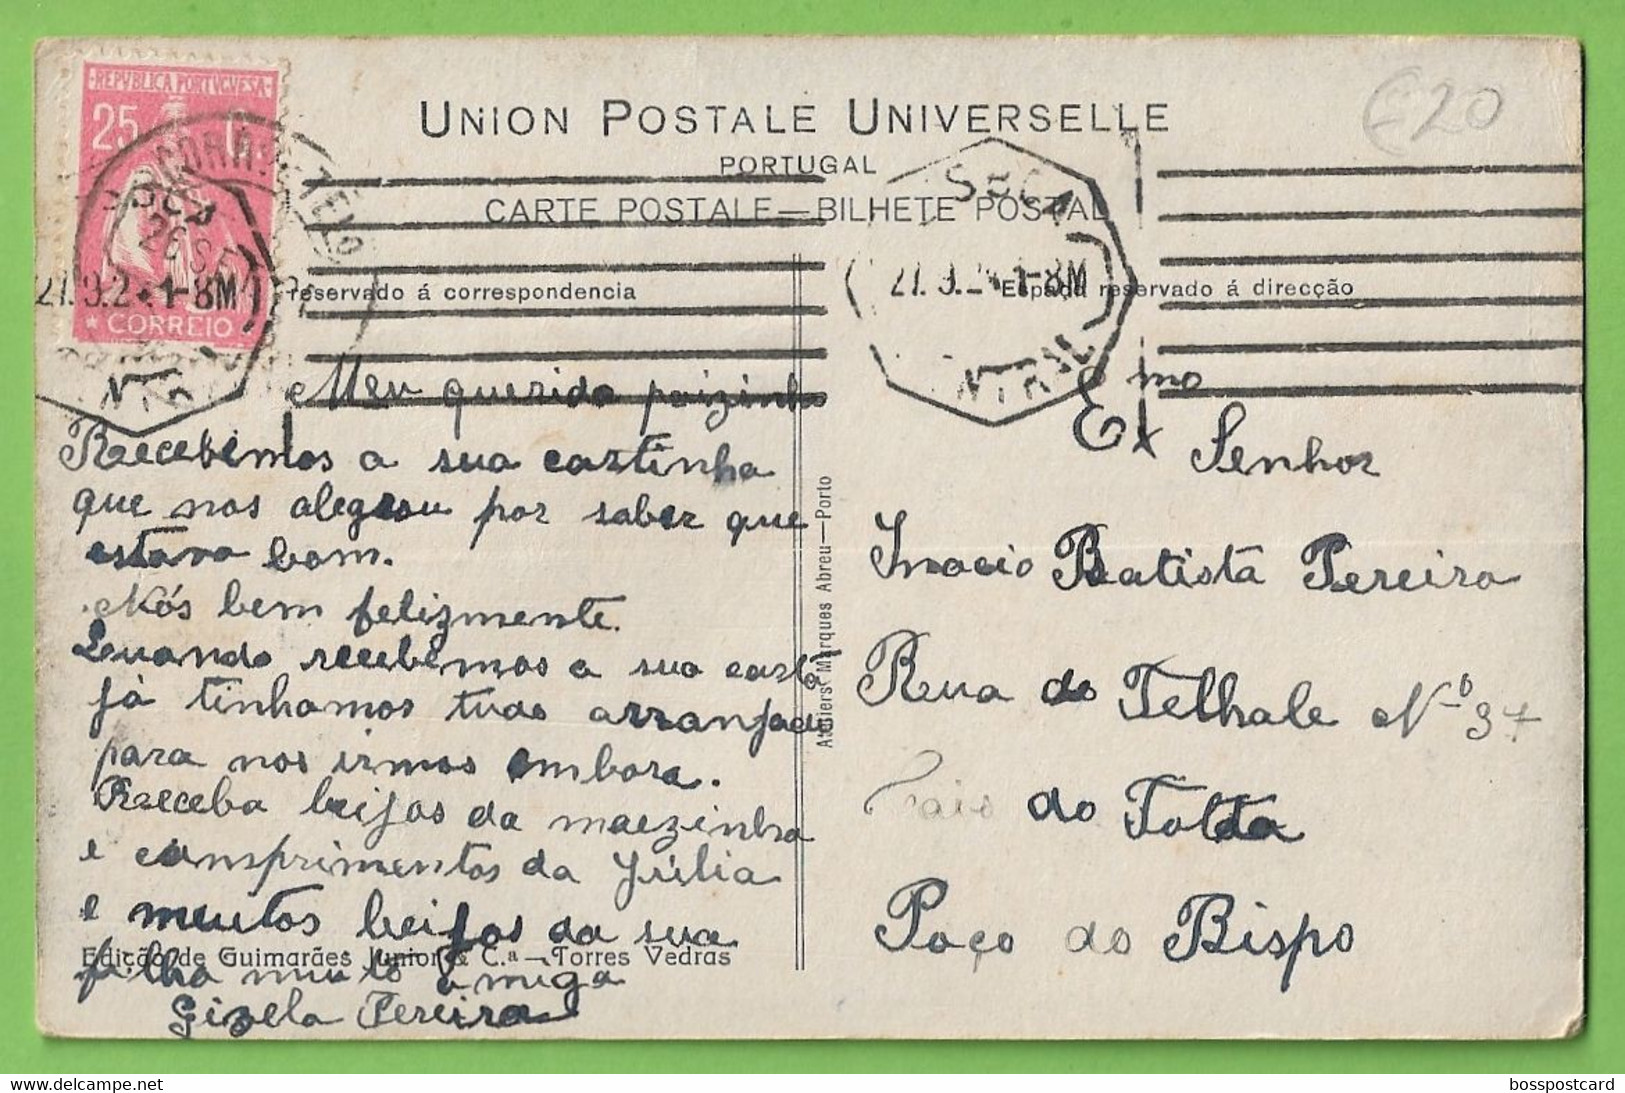 REPUBLICA PORTUGUESA
25 C
* CORREIO
UNION POSTALE UNIVERSELLE
PORTUGAL
CARTE POSTALE — BILHETE POSTAL
£20
26 SET
1-8M
LISBOA
CENTRAL
1-8M
reservado á correspondencia
reservado á direcção
Meu querido paizinho
Recebemos a sua cartinha
que nos alegrou por saber que
estava bom.
Nós bem felizmente.
Quando recebemos a sua carta
já tinhamos tudo arranjado
para nos irmos embora.
Receba beijos da maezinha
e comprimentos da Júlia
e muitos beijos da sua
filha muito amiga
Gizela Pereira
Edição de Guimarães Junior & C.ª — Torres Vedras
Ateliers Marques Abreu — Porto
Exmo
Senhor
Inacio Batista Pereira
Rua do Telhale Nº 37
do
Poço do Bispo
bosspostcard